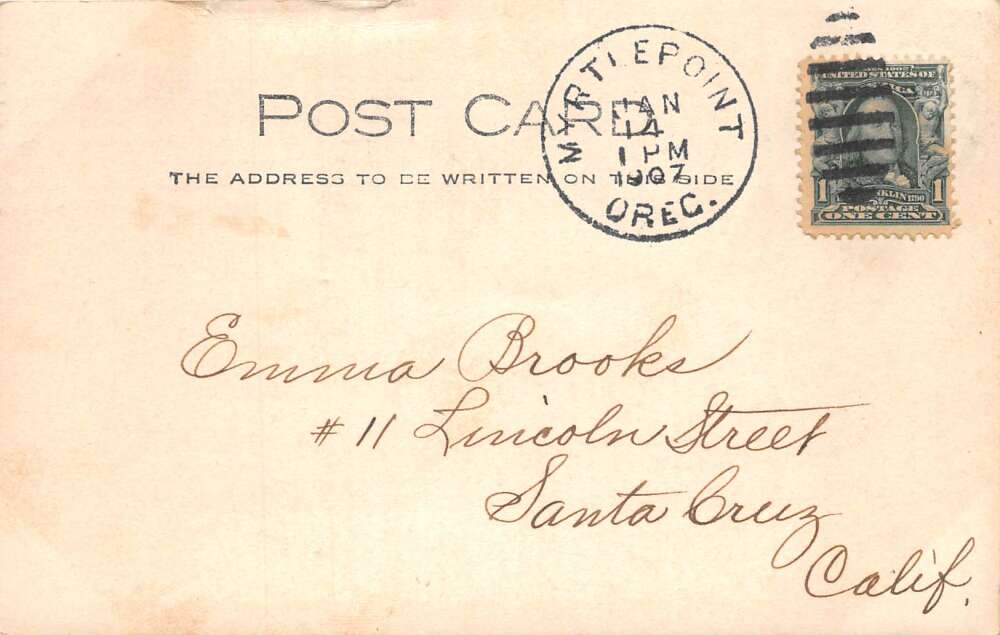 POST CARD
THE ADDRESS TO BE WRITTEN ON THIS SIDE
MYRTLEPOINT
JAN
14
1 PM
1907
OREG.
UNITED STATES OF
1 1
POSTAGE
ONE CENT
Emma Brooks
#11 Lincoln Street
Santa Cruz
Calif.